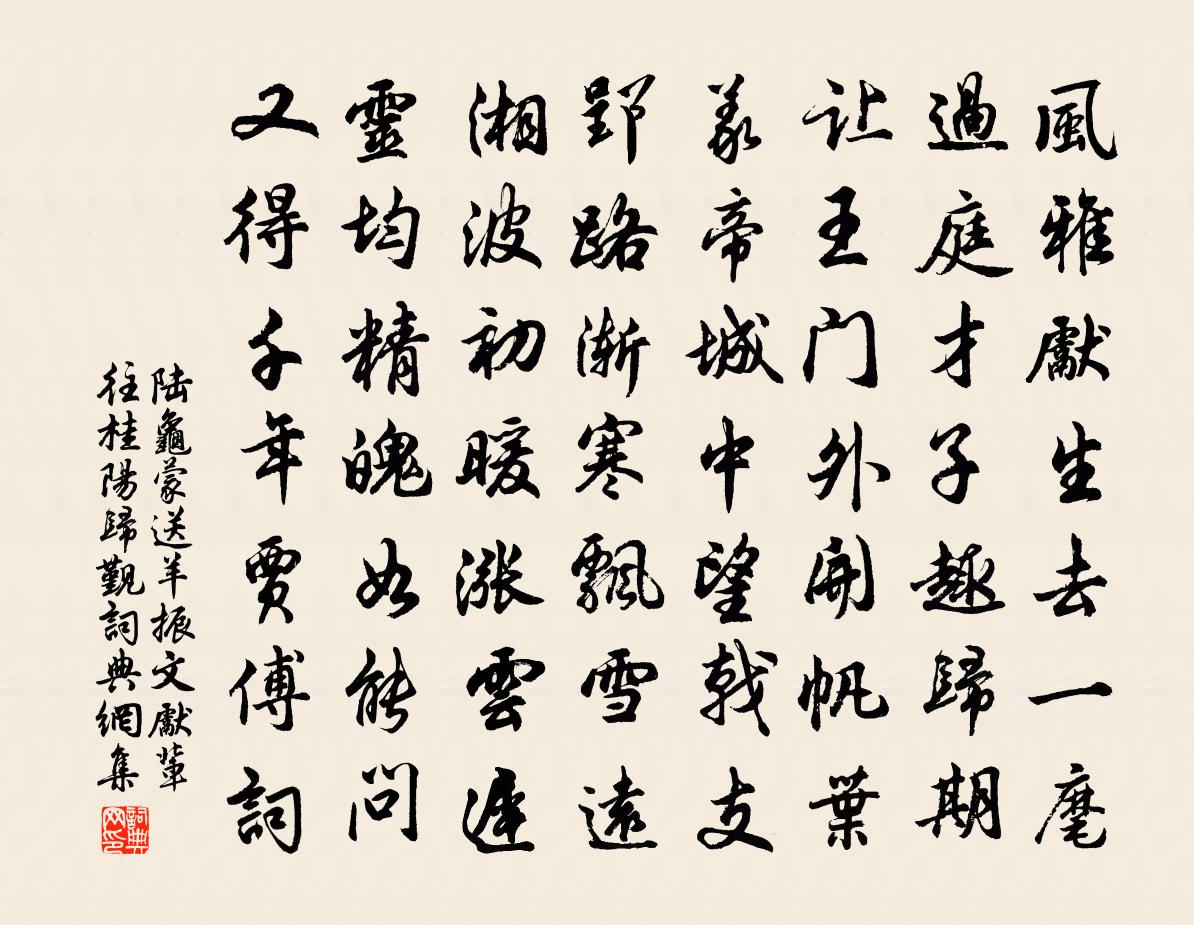 風雅獻生去一麾
過庭才子趣歸期
让王门外開帆葉
義帝城中望戟支
郢路渐寒飄雪遠
湘波初暖涨雲遲
靈均精魄如能問
又得千年賈傅詞
陆龜蒙送羊振文獻輩
往桂陽歸觐詞典網集
詞典网印